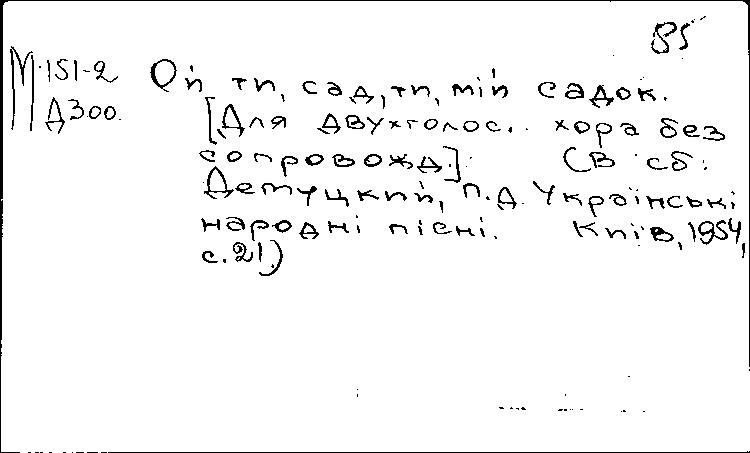 85
М-151-2 Ой ти, сад, ти, мій садок.
Д300. [Для двухголос. хора без
сопровожд.] (В сб:
Демуцкий, П.Д. Українські
народні пісні. Київ, 1954,
с.21)